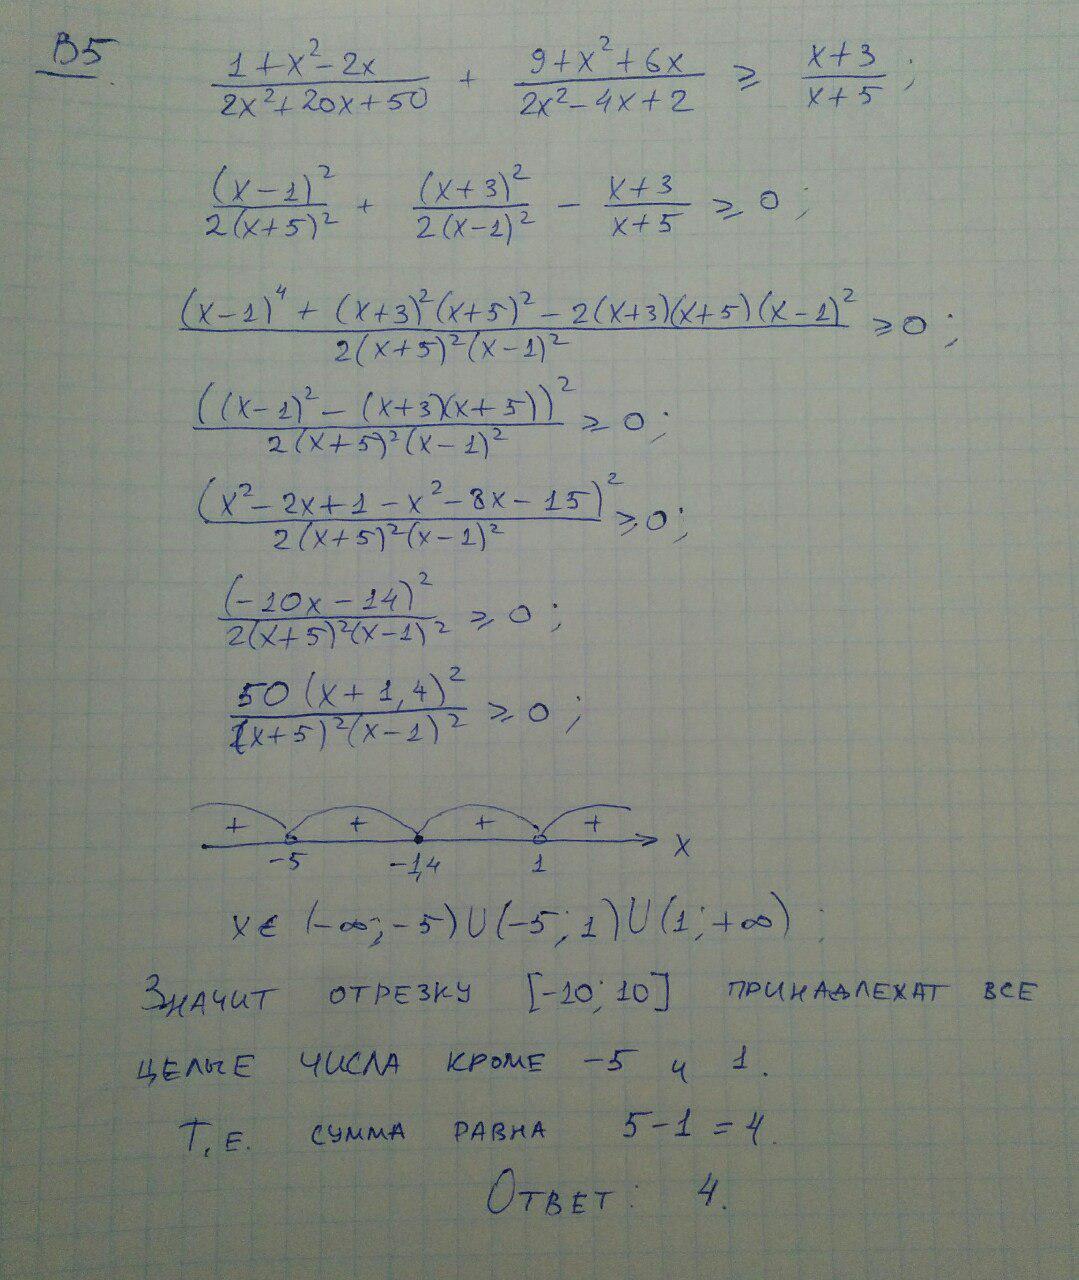 B5. (1+x²-2x)/(2x²+20x+50) + (9+x²+6x)/(2x²-4x+2) ≥ (x+3)/(x+5);
(x-1)²/(2(x+5)²) + (x+3)²/(2(x-1)²) - (x+3)/(x+5) ≥ 0;
((x-1)⁴ + (x+3)²(x+5)² - 2(x+3)(x+5)(x-1)²)/(2(x+5)²(x-1)²) ≥ 0;
((x-1)² - (x+3)(x+5))²/(2(x+5)²(x-1)²) ≥ 0;
(x²-2x+1-x²-8x-15)²/(2(x+5)²(x-1)²) ≥ 0;
(-10x-14)²/(2(x+5)²(x-1)²) ≥ 0;
50(x+1,4)²/((x+5)²(x-1)²) ≥ 0;
+ + + +
-5 -1,4 1 x
x∈ (-∞;-5)∪(-5;1)∪(1;+∞);
Значит отрезку [-10;10] принадлежат все
целые числа кроме -5 и 1.
Т.е. сумма равна 5-1=4.
Ответ: 4.